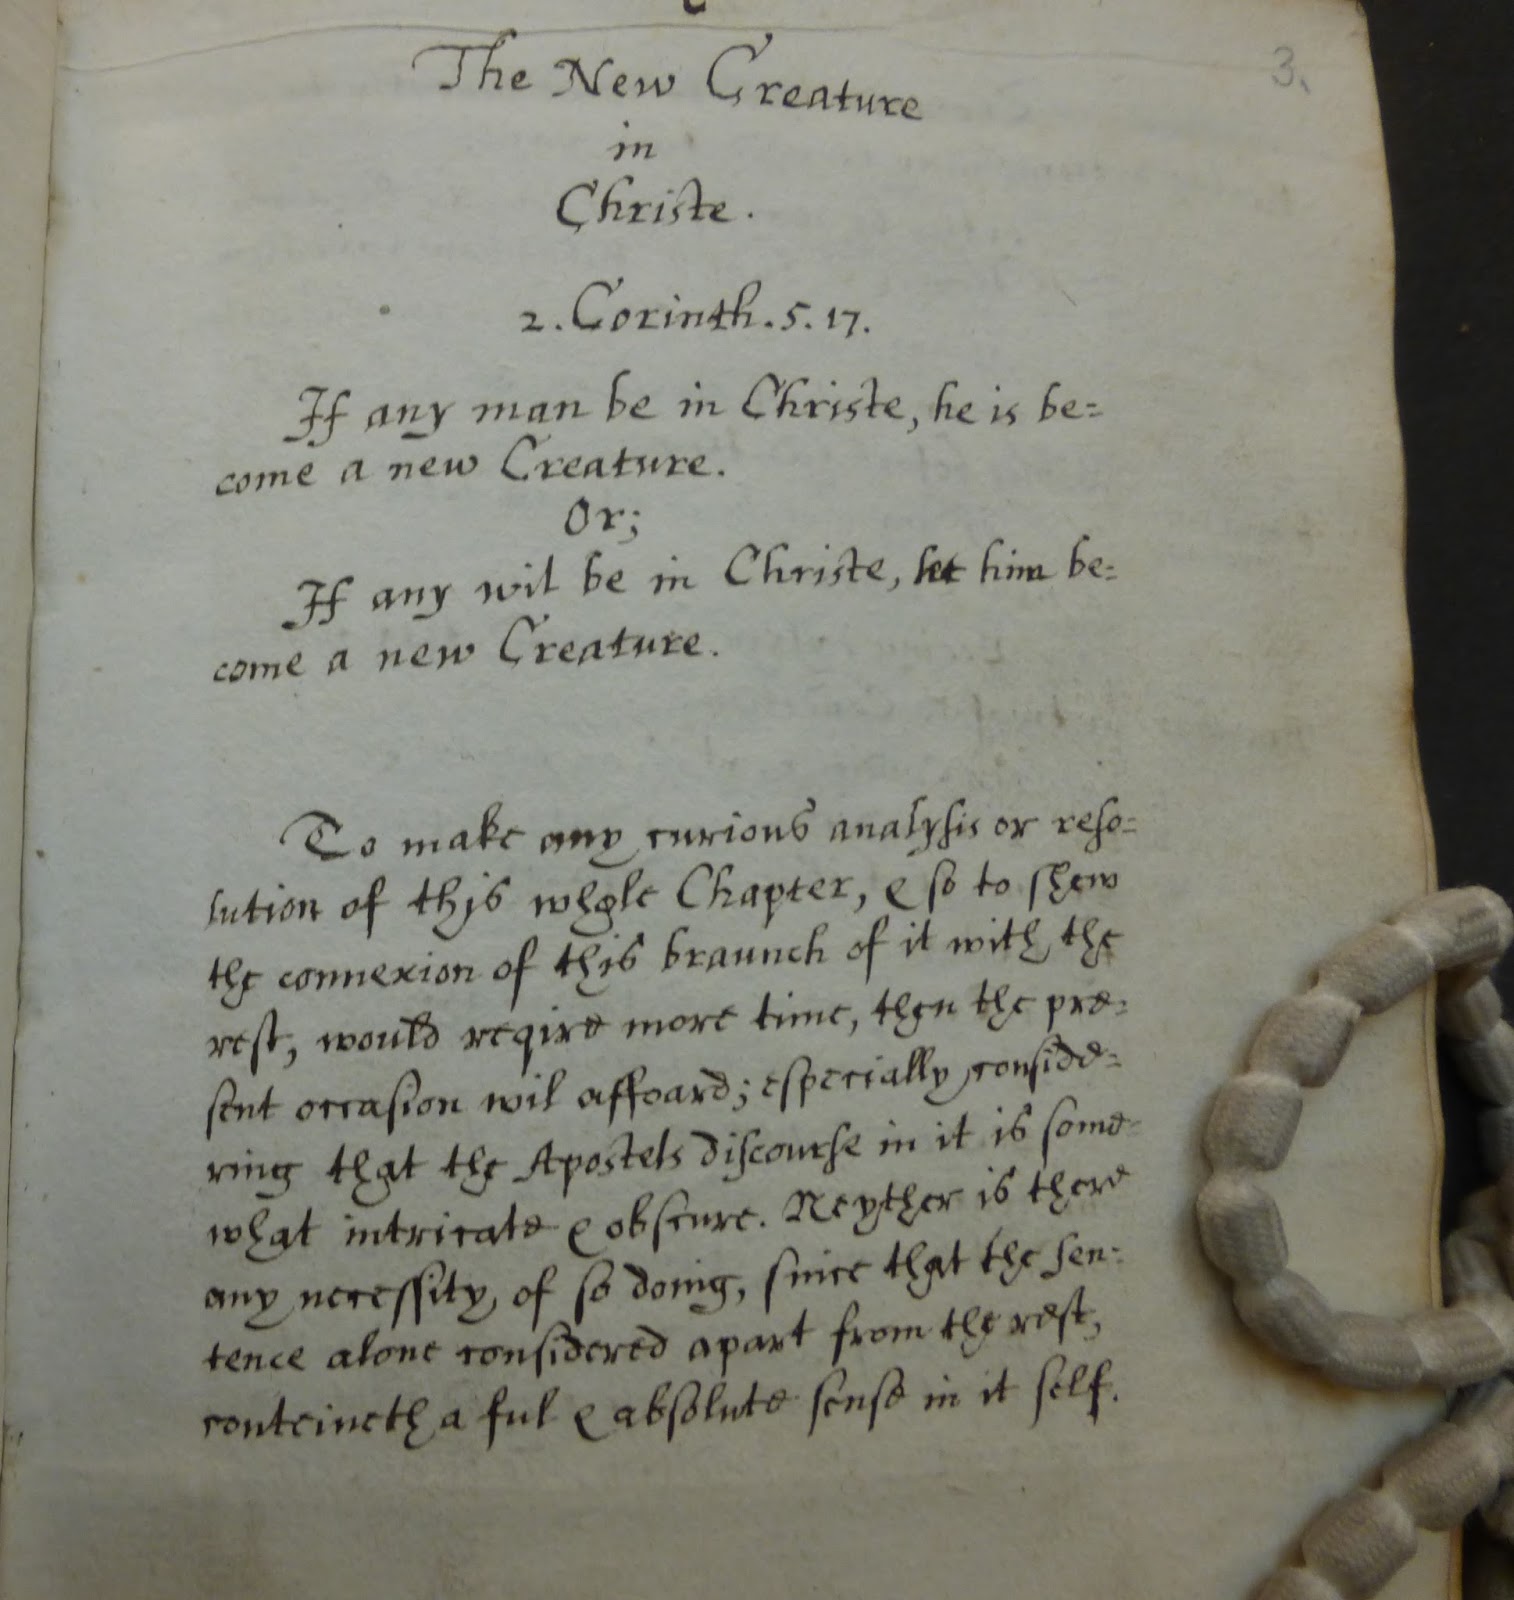 3.
The New Creature
in
Christe.
2. Corinth. 5. 17.
If any man be in Christe, he is be=
come a new Creature.
Or;
If any wil be in Christe, let him be=
come a new Creature.
To make any curious analysis or reso=
lution of this whole Chapter, & so to shew
the connexion of this braunch of it with the
rest, would reqire more time, then the pre=
sent occasion wil affoard; especially conside=
ring that the Apostels discourse in it is some=
what intricate & obscure. Neyther is there
any necessity of so doing, since that the sen=
tence alone considered apart from the rest,
conteineth a ful & absolute sense in it self.